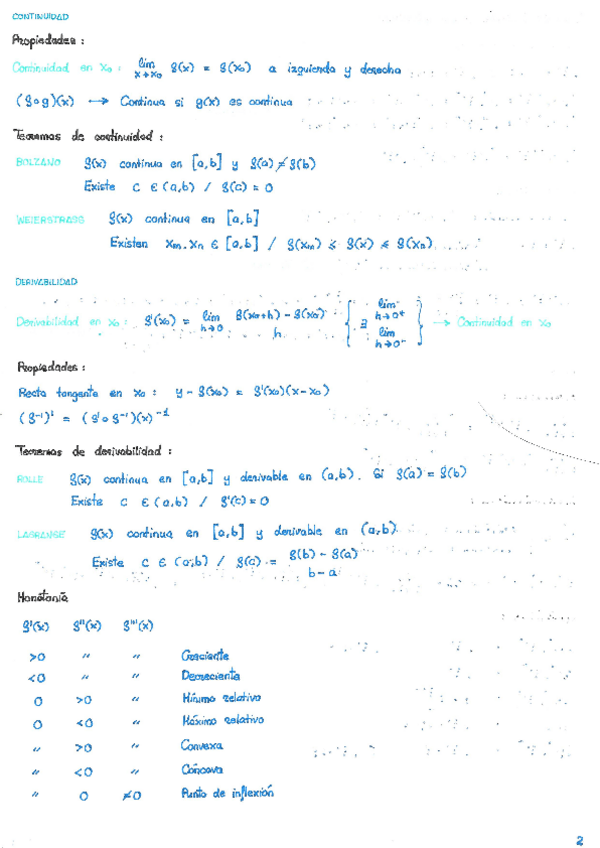 CONTINUIDAD
Propiedades :
Continuidad en x₀ : lim x→x₀ f(x) = f(x₀) a izquierda y derecha
(f∘g)(x) → Continua si g(x) es continua
Teoremas de continuidad :
BOLZANO f(x) continua en [a,b] y f(a) ≠ f(b)
Existe c ∈ (a,b) / f(c) = 0
WEIERSTRASS f(x) continua en [a,b]
Existen xm, xn ∈ [a,b] / f(xm) ≤ f(x) ≤ f(xn)
DERIVABILIDAD
Derivabilidad en x₀ : f'(x₀) = lim h→0 f(x₀+h) - f(x₀) / h { ∃ lim h→0⁺ lim h→0⁻ } → Continuidad en x₀
Propiedades :
Recta tangente en x₀ : y - f(x₀) = f'(x₀)(x-x₀)
(f⁻¹)' = (f'∘f⁻¹)(x)⁻¹
Teoremas de derivabilidad :
ROLLE f(x) continua en [a,b] y derivable en (a,b). Si f(a) = f(b)
Existe c ∈ (a,b) / f'(c) = 0
LAGRANGE f(x) continua en [a,b] y derivable en (a,b)
Existe c ∈ (a,b) / f(c) = f(b) - f(a) / b - a
Monotonía
f'(x) f''(x) f'''(x)
>0 " " Creciente
<0 " " Decreciente
0 >0 " Mínimo relativo
0 <0 " Máximo relativo
" >0 " Convexa
" <0 " Cóncava
" 0 ≠0 Punto de inflexión
2